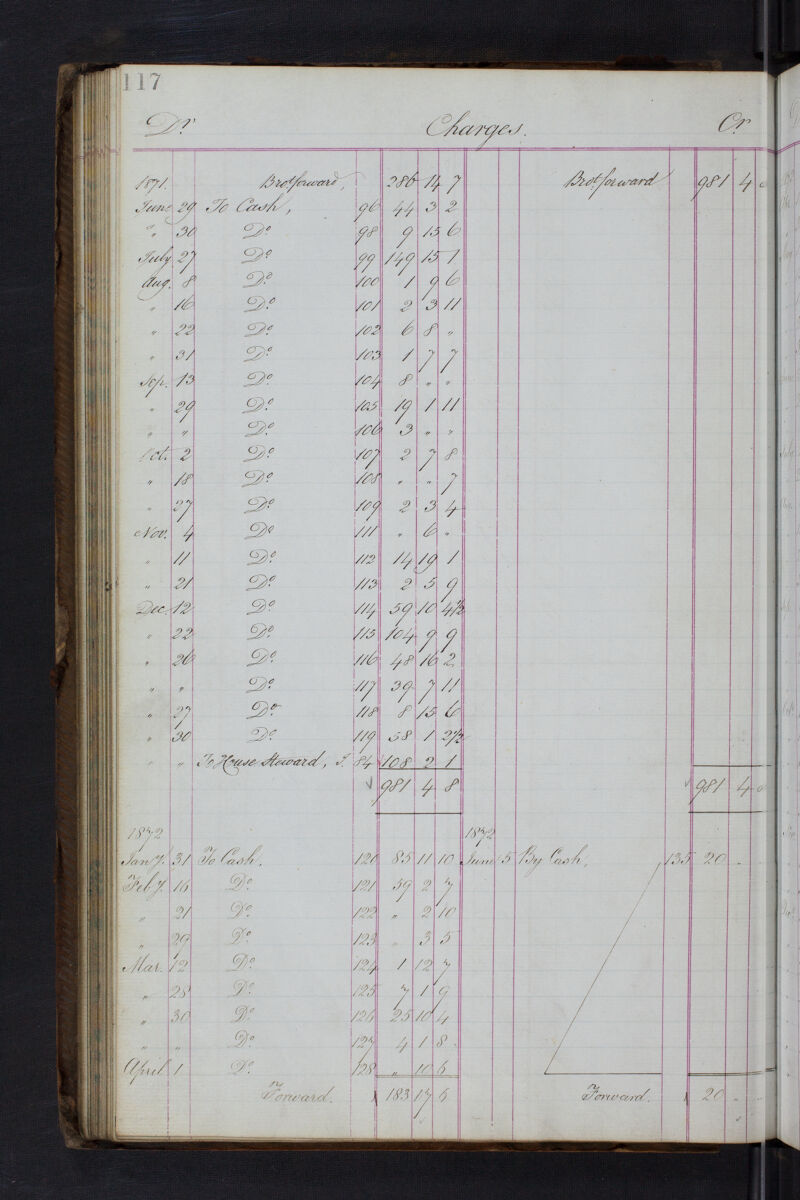 117
Dr. Charges. Cr.
1871. Brot forward, 286 14 7 Brot. forward 981 4
June 29 To Cash, 96 44 3 2
" 30 Do. 98 9 15 6
July 27 Do. 99 149 15 1
Aug. 8 Do. 100 1 9 6
" 16 Do. 101 2 3 11
" 22 Do. 102 6 8 "
" 31 Do. 103 1 7 7
Sep. 13 Do. 104 8 " "
" 29 Do. 105 19 1 11
" " Do. 106 3 " "
Oct. 2 Do. 107 2 7 8
" 18 Do. 108 " " 7
" 27 Do. 109 2 3 4
Nov. 4 Do 111 " 6 "
" 11 Do. 112 14 19 1
" 21 Do. 113 2 5 9
Dec. 12 Do. 114 59 10 4½
" 22 Do. 115 104 9 9
" 26 Do. 116 48 16 2
" " Do. 117 39 7 11
" 27 Do. 118 8 15 6
" 30 Do. 119 58 1 2½
" " To House Steward, J. 84 108 2 1
981 4 8 981 4
1872 1872
Jany. 31 To Cash. 120 85 11 10 June 5 By Cash, 135 20 " "
Feby. 16 Do. 121 59 2 7
" 21 Do. 122 " 2 10
" 29 Do. 123 " 3 5
Mar. 12 Do. 124 1 12 7
" 28 Do. 125 7 1 9
" 30 Do. 126 25 10 4
" " Do. 127 4 1 8
April 1 Do. 128 " 10 6
Forward. 183 17 6 Forward. 20 " "